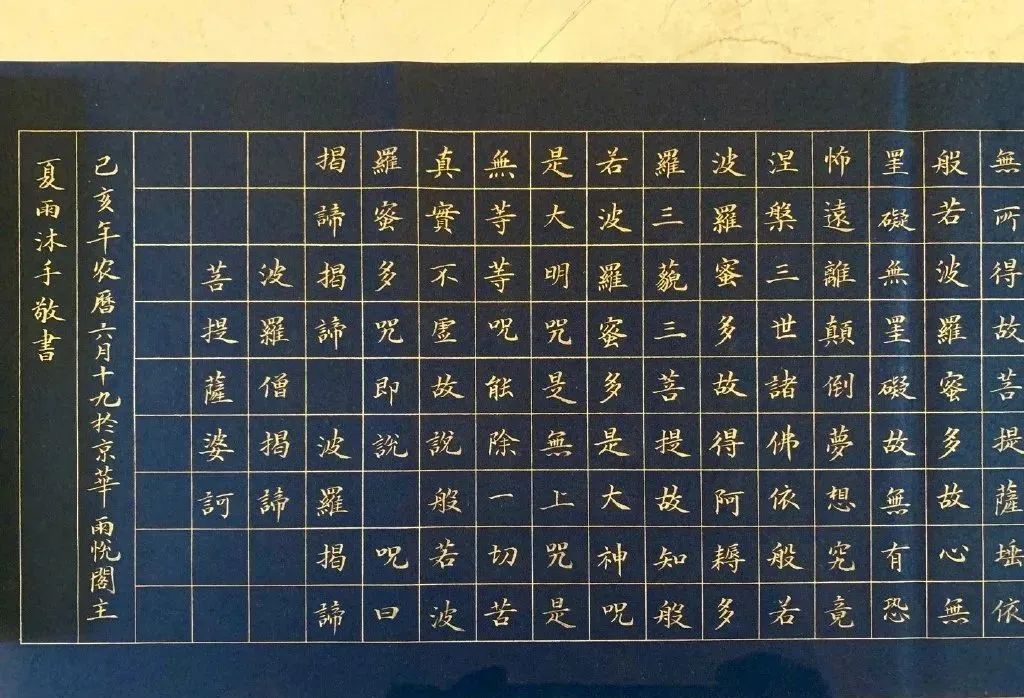 無所得故菩提薩埵依
般若波羅蜜多故心無
罣礙無罣礙故無有恐
怖遠離顛倒夢想究竟
涅槃三世諸佛依般若
波羅蜜多故得阿耨多
羅三藐三菩提故知般
若波羅蜜多是大神咒
是大明咒是無上咒是
無等等咒能除一切苦
真實不虛故說般若波
羅蜜多咒即說 咒曰
揭諦揭諦 波羅揭諦
波羅僧揭諦
菩提薩婆訶
己亥年农曆六月十九於京華 雨悅閣主
夏雨沐手敬書